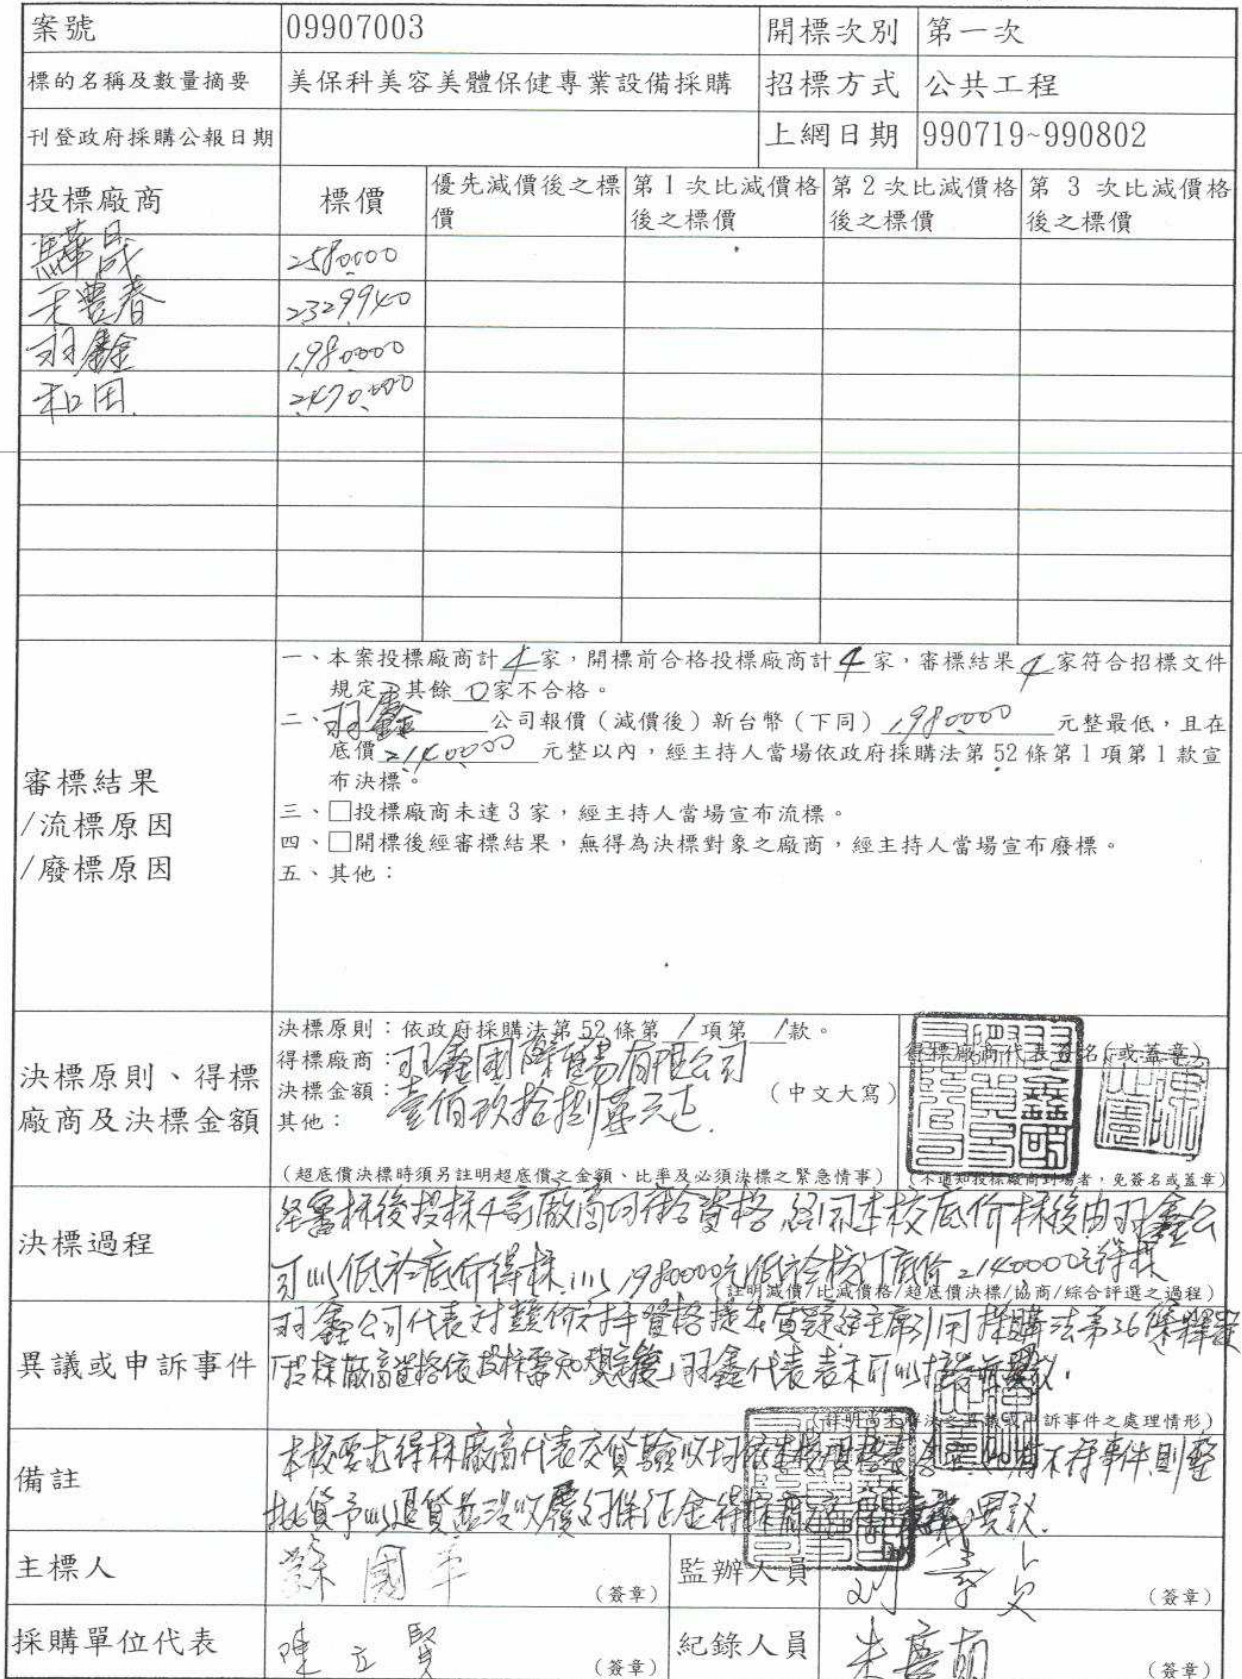 案號 09907003 開標次別 第一次
標的名稱及數量摘要 美保科美容美體保健專業設備採購 招標方式 公共工程
刊登政府採購公報日期 上網日期 990719~990802
投標廠商 標價 優先減價後之標價 第1次比減價格後之標價 第2次比減價格後之標價 第3次比減價格後之標價
驊晟 2580000
天豐春 2329940
羽鑫 1,980000
和田 2470,000
審標結果
/流標原因
/廢標原因
一、本案投標廠商計4家,開標前合格投標廠商計4家,審標結果4家符合招標文件
規定,其餘0家不合格。
二、羽鑫公司報價(減價後)新台幣(下同)1,980000元整最低,且在
底價2,140000元整以內,經主持人當場依政府採購法第52條第1項第1款宣
布決標。
三、□投標廠商未達3家,經主持人當場宣布流標。
四、□開標後經審標結果,無得為決標對象之廠商,經主持人當場宣布廢標。
五、其他:
決標原則、得標
廠商及決標金額
決標原則:依政府採購法第52條第1項第1款。
得標廠商:羽鑫國際貿易有限公司
決標金額:壹佰玖拾捌萬元正. (中文大寫)
其他:
(超底價決標時須另註明超底價之金額、比率及必須決標之緊急情事)
得標廠商代表簽名(或蓋章)
(不通知投標廠商到場者,免簽名或蓋章)
決標過程
經審標後投標4家廠商均符合資格,經同本校底价標後由羽鑫公
司以低於底价得標,以1980000元低於核訂底价2140000元得標
(註明減價/比減價格/超底價決標/協商/綜合評選之過程)
異議或申訴事件
羽鑫公司代表對競价对手資格提出質疑經主席引用採購法第36條釋疑
「投標廠商資格依投標需知規定 羽鑫代表表示可以接
(詳明尚未解決之異議或申訴事件之處理情形)
備註
本校要求得標廠商代表交貨驗收均依本校規格 不符事件則整
批貨予以退貨並沒收履約保证金得標廠商 異議.
主標人 蘇國華 (簽章) 監辦人員 (簽章)
採購單位代表 陳立賢 (簽章) 紀錄人員 (簽章)